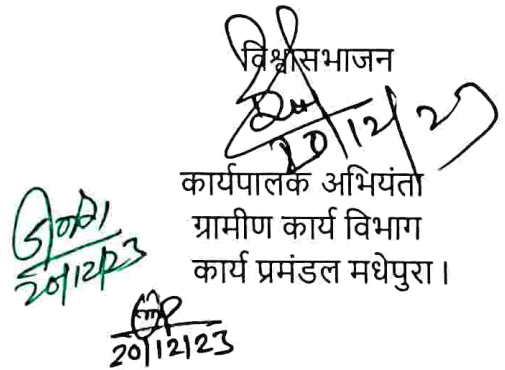 विश्वासभाजन
20/12/23
कार्यपालक अभियंता
ग्रामीण कार्य विभाग
कार्य प्रमंडल मधेपुरा।
20/12/23
20/12/23